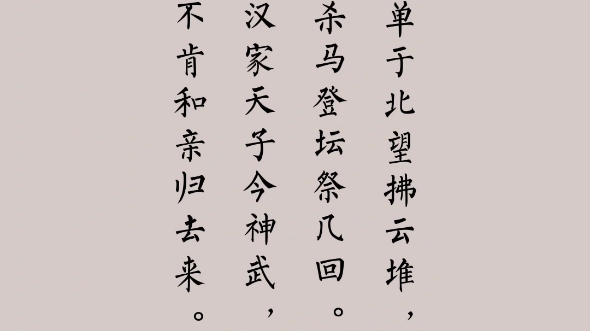 单于北望拂云堆，
杀马登坛祭几回。
汉家天子今神武，
不肯和亲归去来。